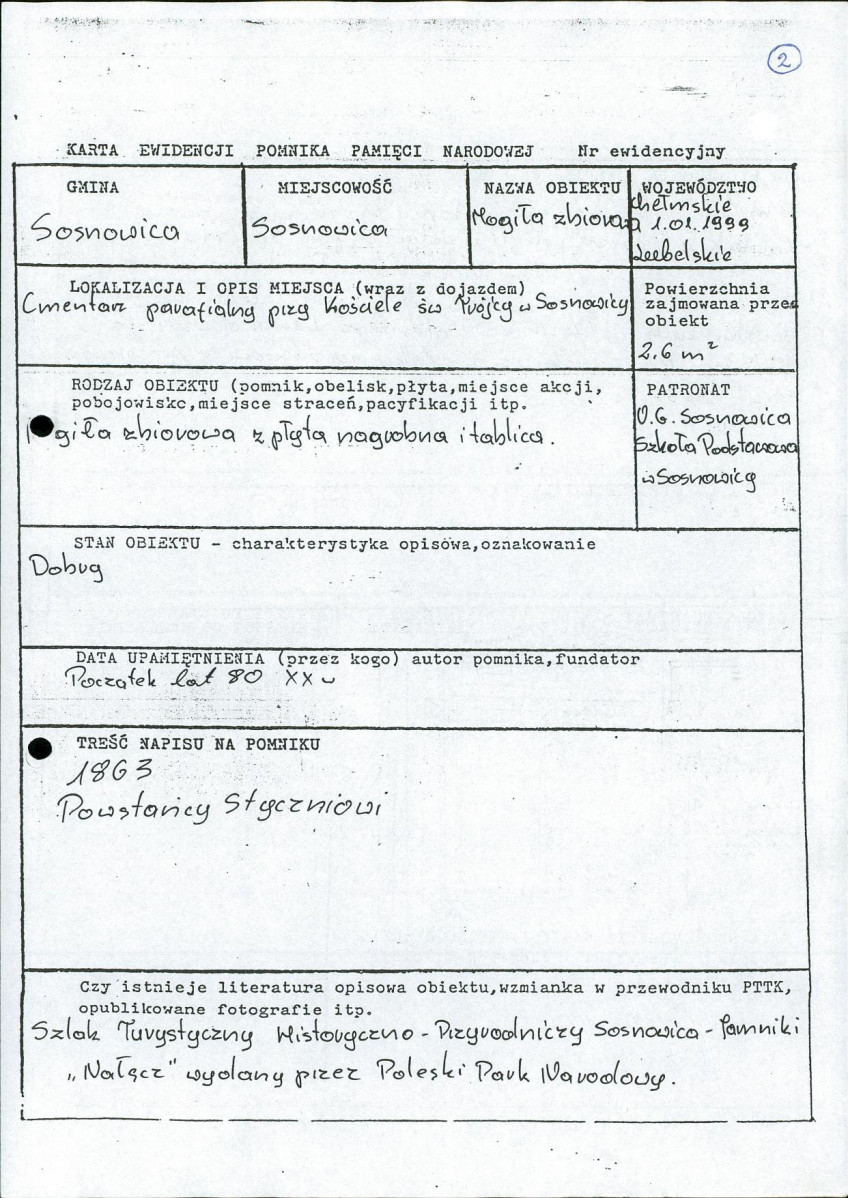 2
KARTA EWIDENCJI POMNIKA PAMIĘCI NARODOWEJ Nr ewidencyjny
GMINA
Sosnowica
MIEJSCOWOŚĆ
Sosnowica
NAZWA OBIEKTU
Mogiła zbiorowa
WOJEWÓDZTWO
Chełmskie
1.01.1999
Lubelskie
LOKALIZACJA I OPIS MIEJSCA (wraz z dojazdem)
Cmentarz parafialny przy Kościele św Trójcy w Sosnowicy
Powierzchnia
zajmowana przez
obiekt
2.6 m²
RODZAJ OBIEKTU (pomnik,obelisk,płyta,miejsce akcji,
pobojowisko,miejsce straceń,pacyfikacji itp.
Mogiła zbiorowa z płyta nagrobna i tablica.
PATRONAT
U.G. Sosnowica
Szkoła Podstawowa
w Sosnowicy
STAN OBIEKTU - charakterystyka opisowa,oznakowanie
Dobry
DATA UPAMIĘTNIENIA (przez kogo) autor pomnika,fundator
Początek lat 80 XX w
TREŚĆ NAPISU NA POMNIKU
1863
Powstańcy Styczniowi
Czy istnieje literatura opisowa obiektu,wzmianka w przewodniku PTTK,
opublikowane fotografie itp.
Szlak Turystyczny Historyczno - Przyrodniczy Sosnowica - Pamniki
„Nałęcz" wydany przez Poleski Park Narodowy.